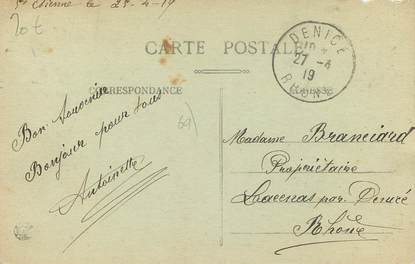 St Etienne le 25-4-19
20 t
CARTE POSTALE
DENICÉ
27 -4
19
RHONE
CORRESPONDANCE
ADRESSE
Bon Souvenir
Bonjour pour tous
Antoinette
69
Madame Branciard
Propriétaire
Lacenas par Denicé
Rhône